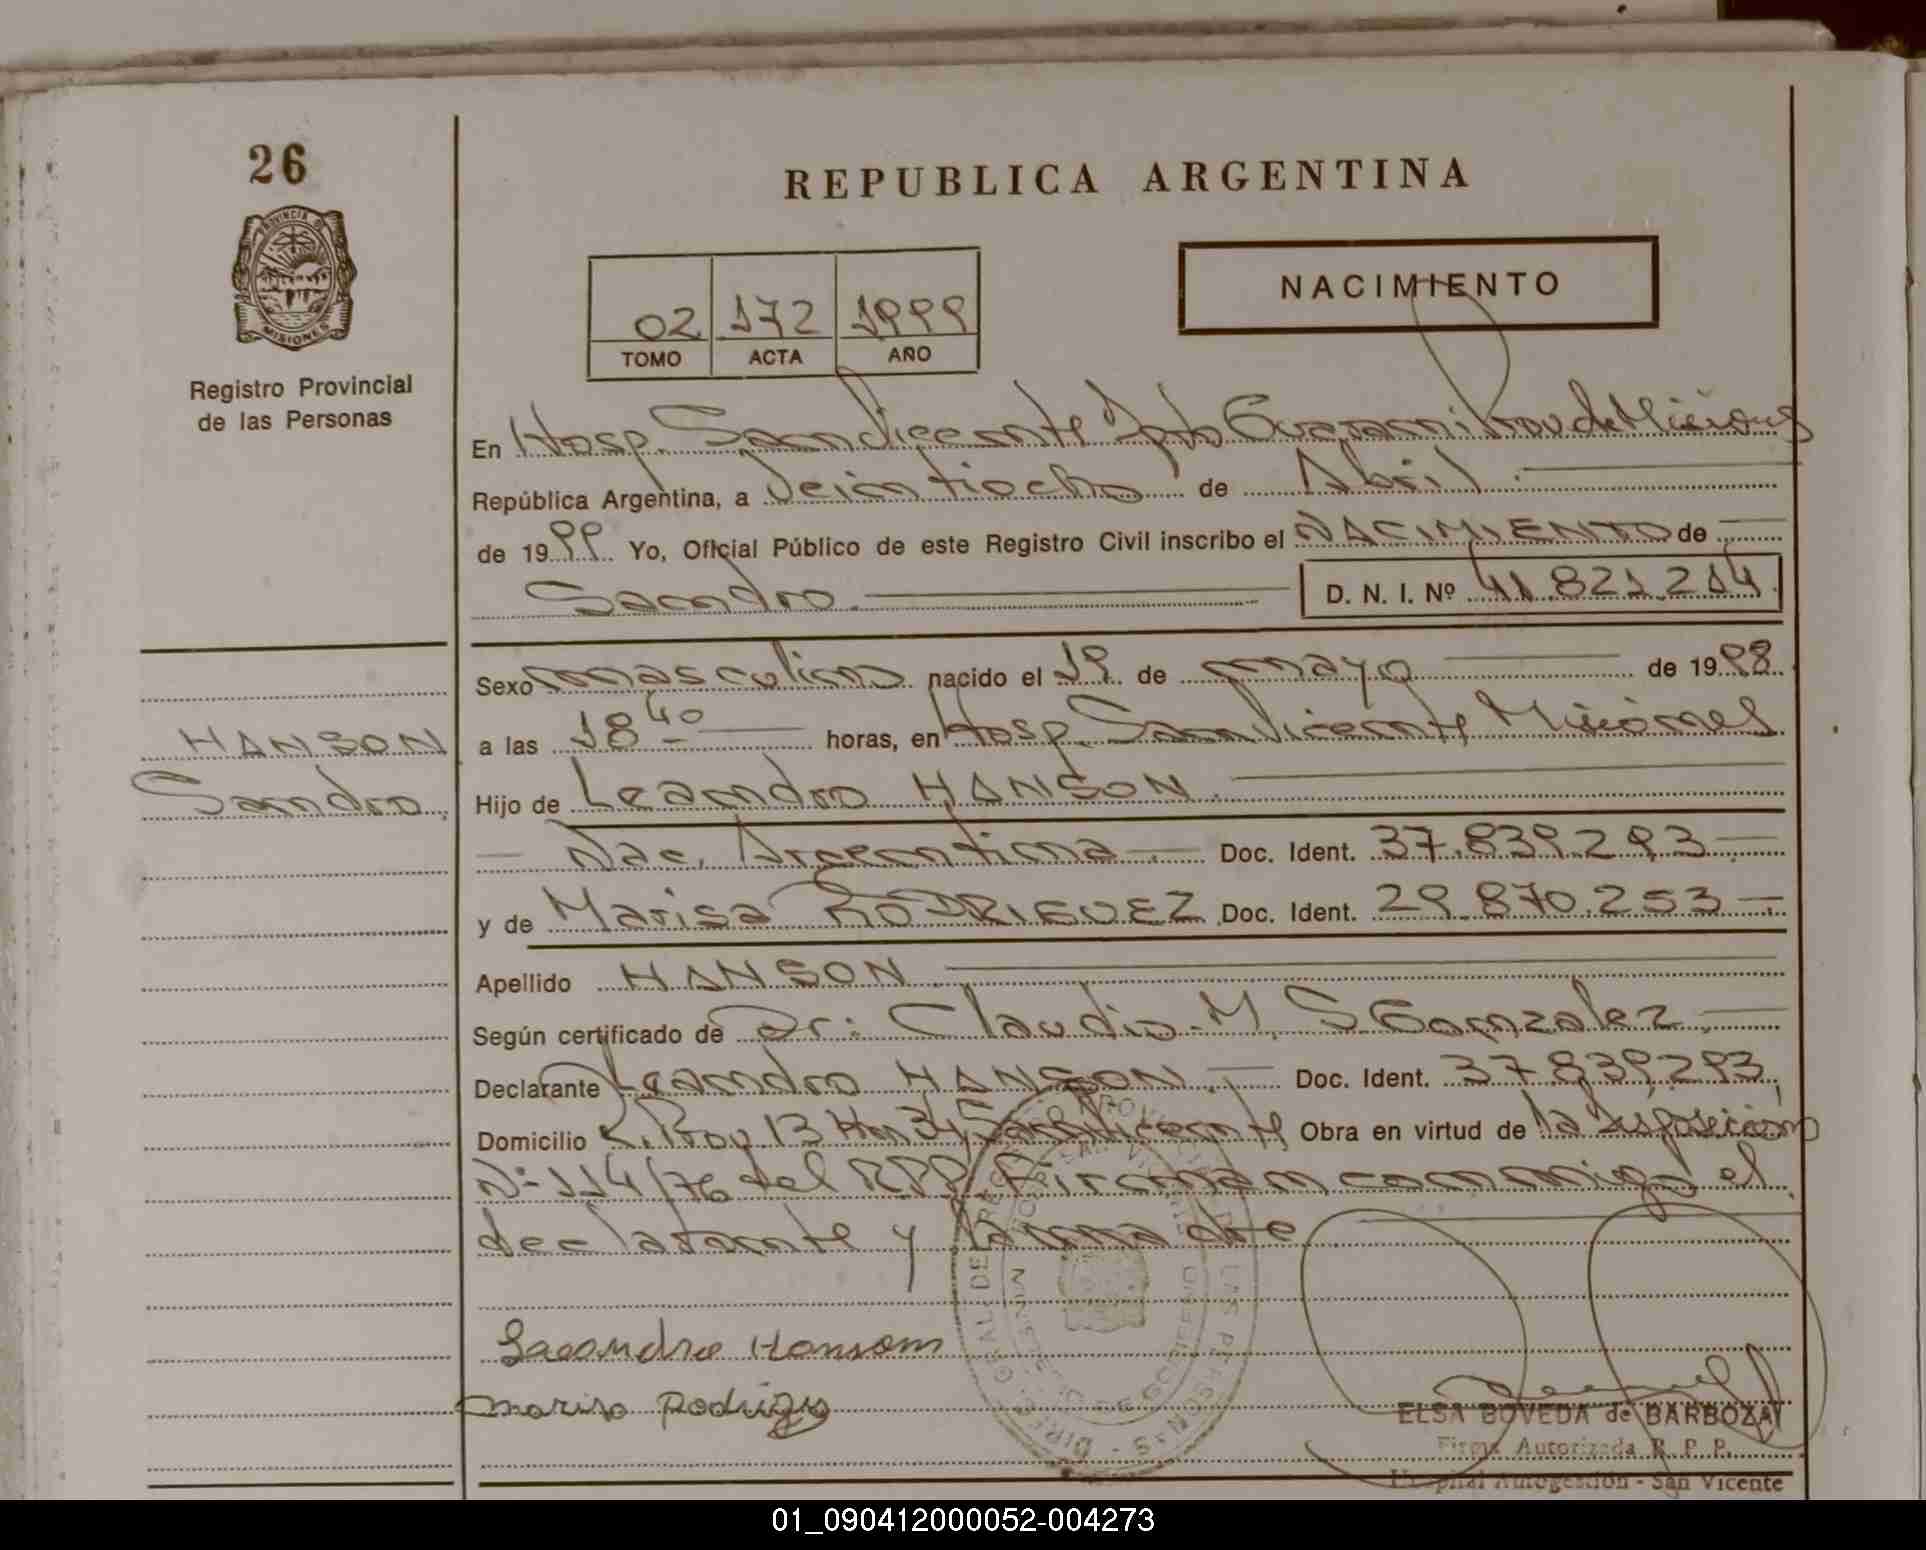 26
REPUBLICA ARGENTINA
PROVINCIA DE
MISIONES
Registro Provincial
de las Personas
02 172 1999
TOMO ACTA AÑO
NACIMIENTO
En Hosp. San Vicente Dpto Guarani Prov de Misiones
República Argentina, a Veintiocho de Abril
de 1999 Yo, Oficial Público de este Registro Civil inscribo el NACIMIENTO de
Sandro. D. N. I. Nº 41.821.214
Sexo masculino nacido el 19 de mayo de 1998
HANSON
Sandro
a las 18 40 horas, en Hosp. San Vicente Misiones
Hijo de Leandro HANSON.
Nac. Argentina Doc. Ident. 37.839.293
y de Marisa RODRIGUEZ Doc. Ident. 29.870.253
Apellido HANSON
Según certificado de Dr: Claudio M. S Gonzalez
Declarante Leandro HANSON. Doc. Ident. 37.839.293
Domicilio R. Prov 13 Km 34 San Vicente Obra en virtud de la Disposición
Nº 114/76 del RPP. Firman conmigo el
declarante y la madre
Leandro Hanson
Marisa Rodrigu
ELSA BOVEDA de BARBOZA
Firma Autorizada R. P. P.
Hospital Autogestión - San Vicente
01_090412000052-004273